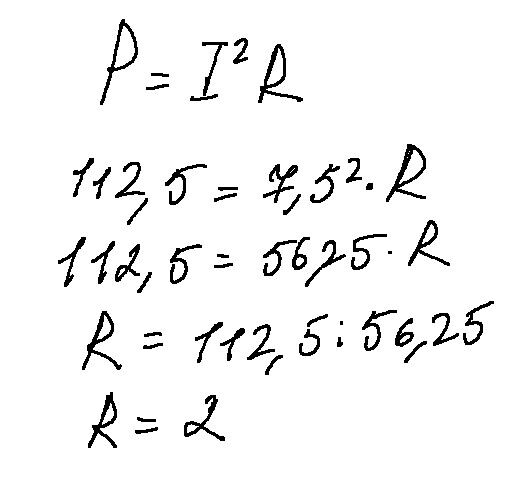 P = I² R
112,5 = 7,5² · R
112,5 = 56,25 · R
R = 112,5 : 56,25
R = 2